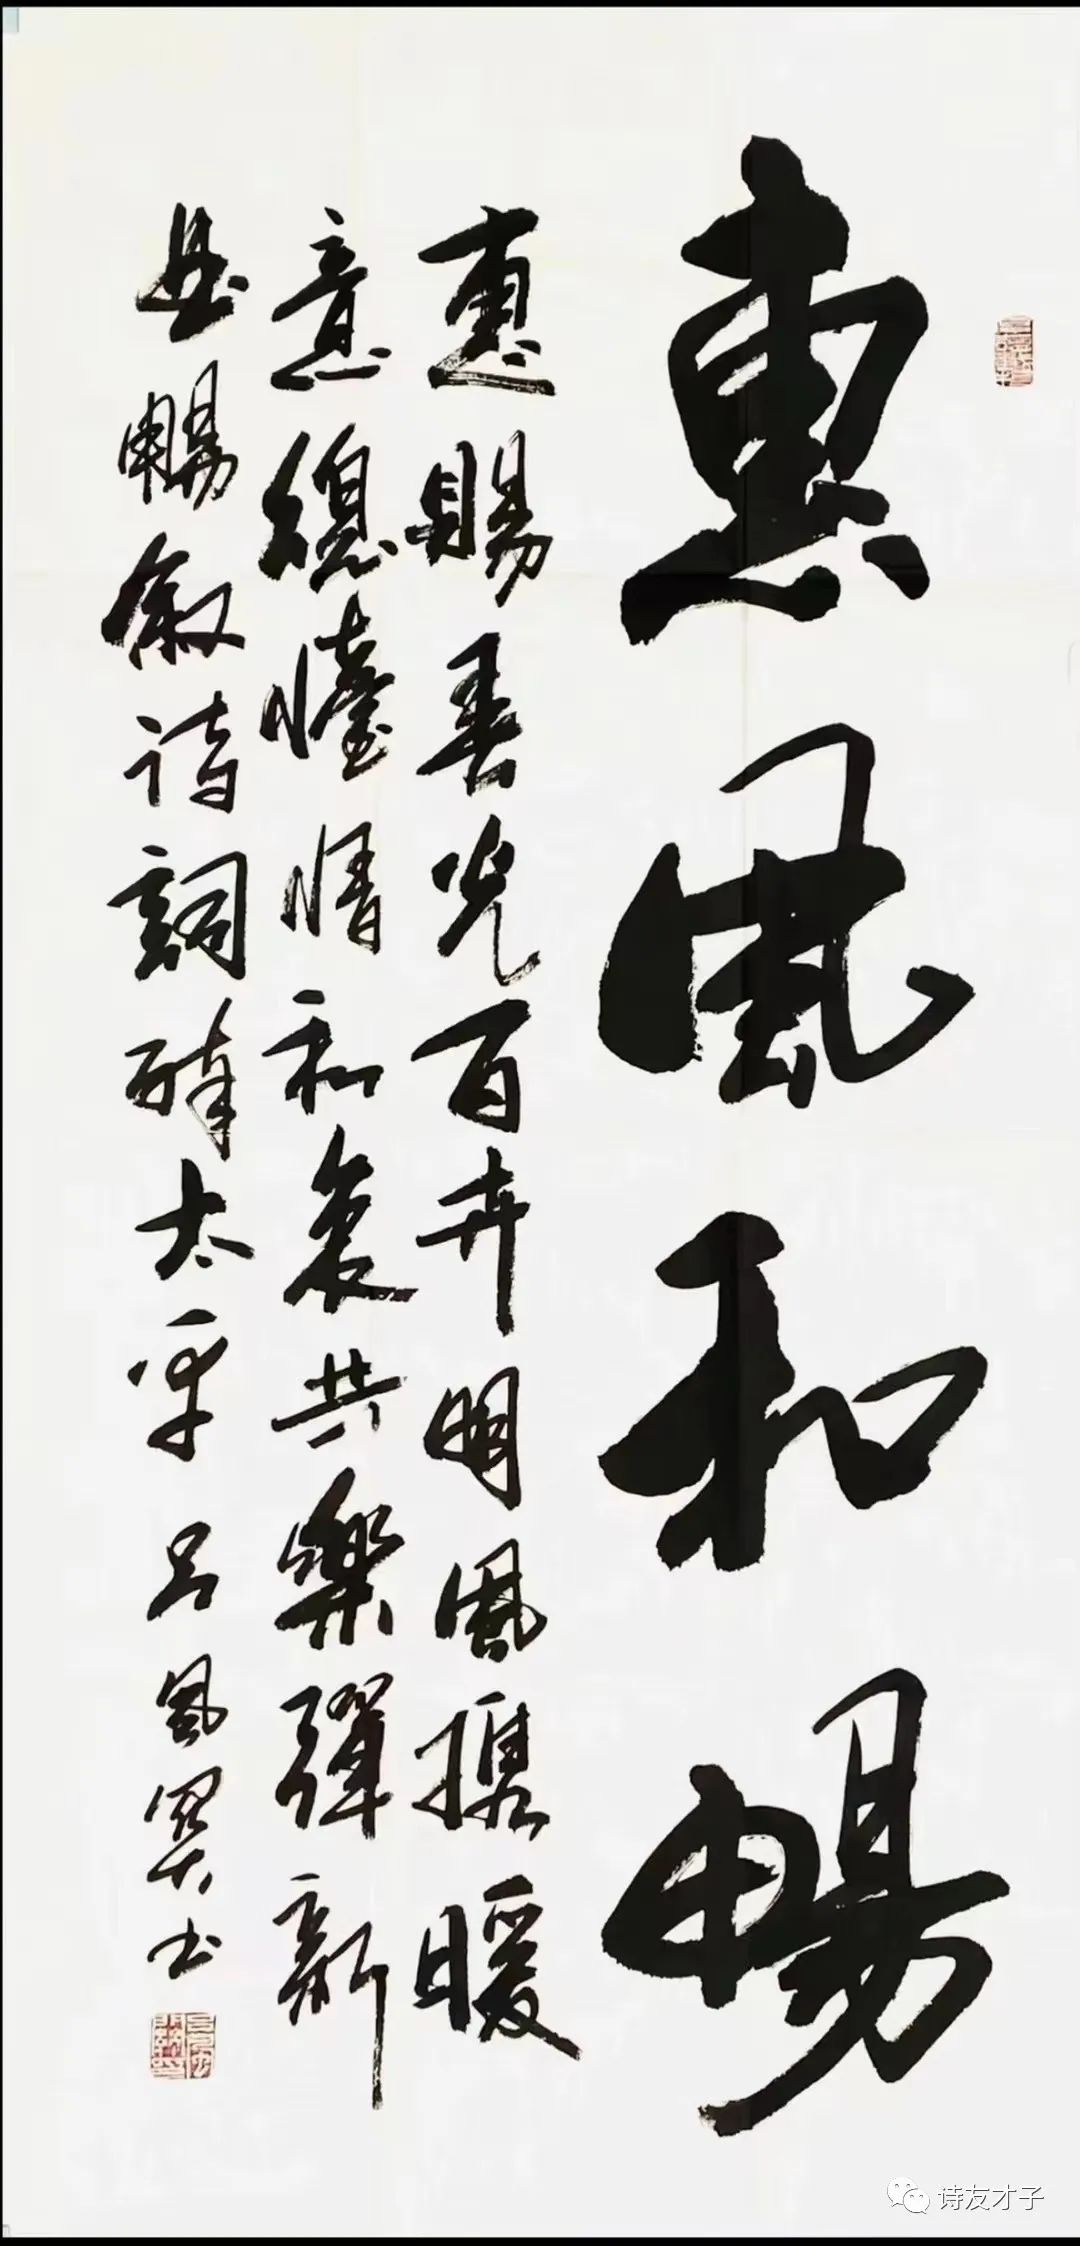 惠風和暢
惠賜春光百卉明風携暖
意總情和衷共樂彈新
曲暢叙詩詞醉太平 吕風书
诗友才子